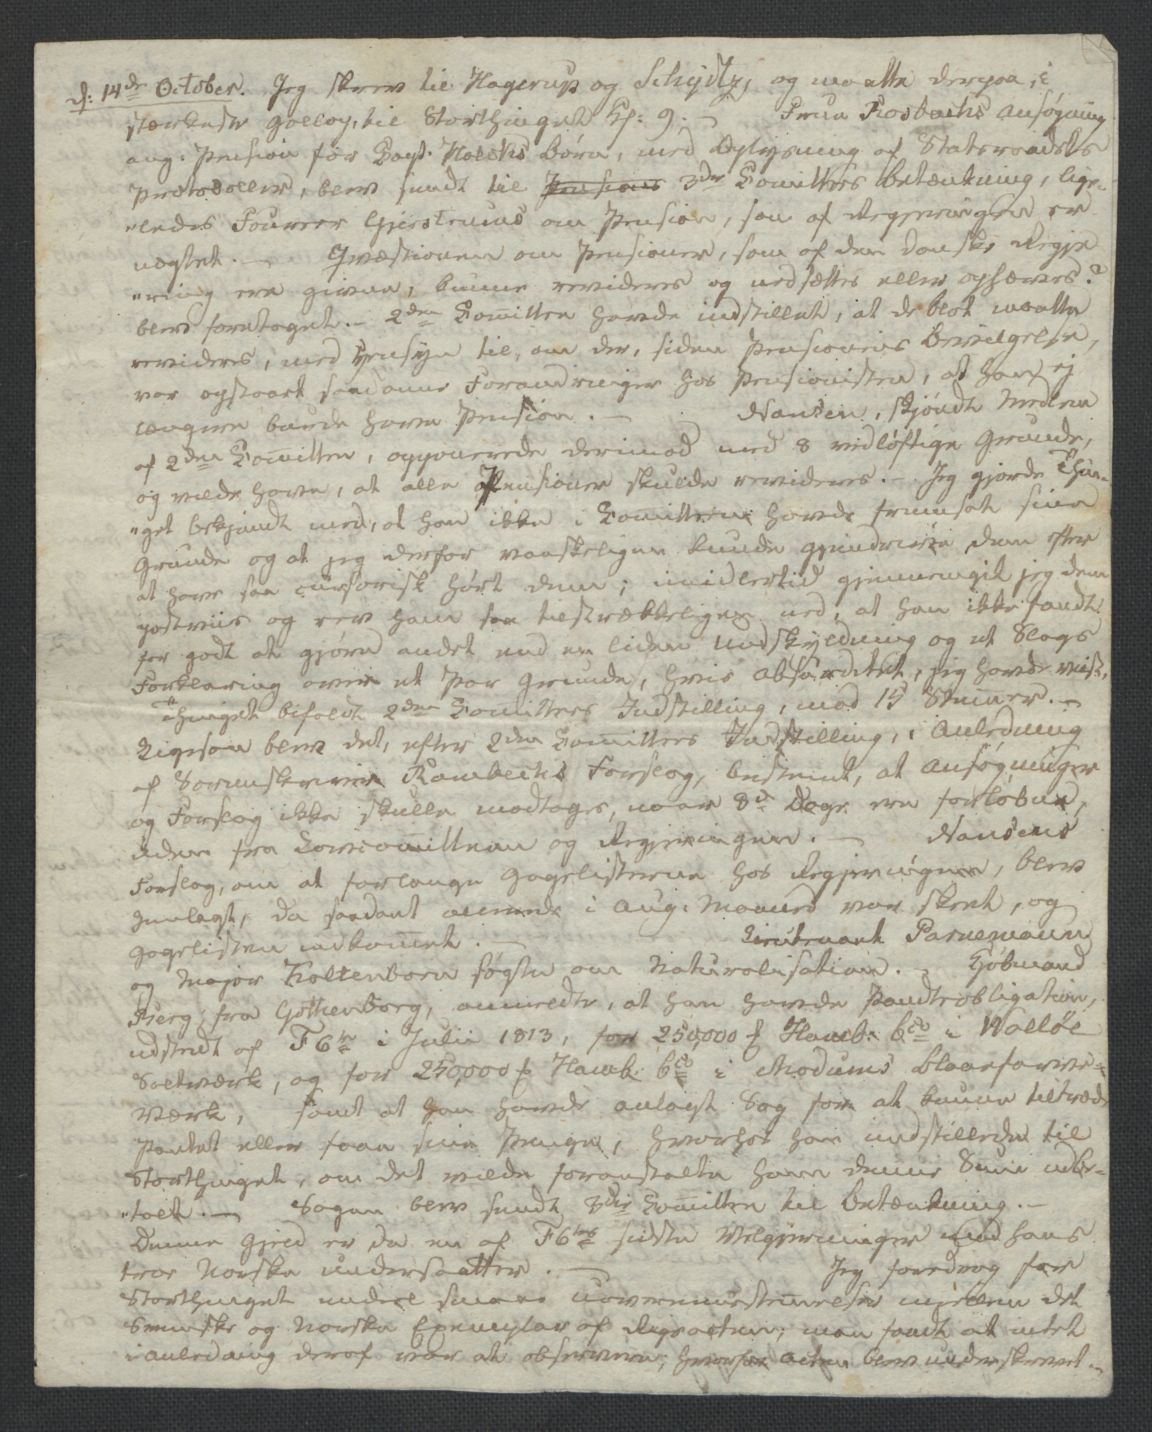 d: 14de October. Jeg skrev til Hagerup og Schydtz, og maatte derpaa, i
stærkeste Gallop, til Storthinget Kl: 9. — Frue Rosbachs Ansøgning
ang. Pension for Capt. Holcks Børn, med Oplysning af Statsraadets
Protocoller, blev sendt til 3die Comittees Betænkning, lige-
"ledes Fourer Gjerdrums om Pension, som af Regjeringen er
nægtet. — Qvæstionen om Pensioner, som af den danske Regje
"ring ere givne, kunne revideres og nedsættes eller ophæves?
blev foretaget. — 2den Comittee havde indstillet, at de blot maatte
revideres, med Hensyn til, om der, siden Pensionens Bevilgelse,
var opstaaet saadanne Forandringer hos Pensionisten, at han ej
længere burde have Pension. — Nansen, skjøndt Medlem
af 2den Comittee, opponerede derimod med 8 vidløftige Grunde,
og vilde have, at alle Pensioner skulde revideres. — Jeg gjorde Thin-
"get bekjendt med, at han ikke i Comitteen havde fremsat sine
Grunde og at jeg derfor vanskeligen kunde gjendrive dem efter
at have saa cursorisk hørt dem; imidlertid gjennemgik jeg dem
postviis og rev ham saa tilstrækkeligen ned, at han ikke fandt
for godt at gjøre andet end en liden Undskyldning og et Slags
Forklaring over et Par Grunde, hvis Absurditet, jeg havde viist.
Thinget bifaldt 2den Comittees Indstilling, mod 15 Stemmer. —
Ligesom blev det, efter 2den Comittees Indstilling, i Anledning
af Sorenskriver Rambechs Forslag, bestemt, at Ansøgninger
og Forslag ikke skulle modtages, naar 8te Dage ere forløbne,
uden fra Lovcomitteen og Regjeringen. — Nansens
Forslag, om at forlange Gagelisterne hos Regjeringen, blev
henlagt, da saadant allerede i Aug: Maaned var skeet, og
Gagelisten indkommet. — Lieutenant Parnemann
og Major Koltenborn søgte om Naturalisation. — Kjøbmand
Bierg, fra Gothenborg, anmeldte, at han havde Pandtobligation,
udstedt af F 6te i Julii 1813, for 250,000 ƒ Hamb: bco i Walløe
Saltværk, og for 250,000 ƒ Hamb: bco i Modums Blaafarve-
værk, samt at han havde anlagt Sag for at kunne tiltræde
Pantet eller faae sine Penge, hvorhos han indstillede til
Storthinget, om det vilde foranstalte ham denne Sum udbe-
"talt. — Sagen blev sendt 3die Comittee til Betænkning. —
Denne Gjeld er da en af F 6tes sidste Velgjerninger mod hans
troe Norske Undersaatter. — Jeg foredrog for
Storthinget endeel smaae Uovereensstemmelser mellem det
Svenske og Norske Exemplar af Rigsacten; man fandt at intet
i Anledning deraf var at observere, hvorfor Acten blev underskrevet. —